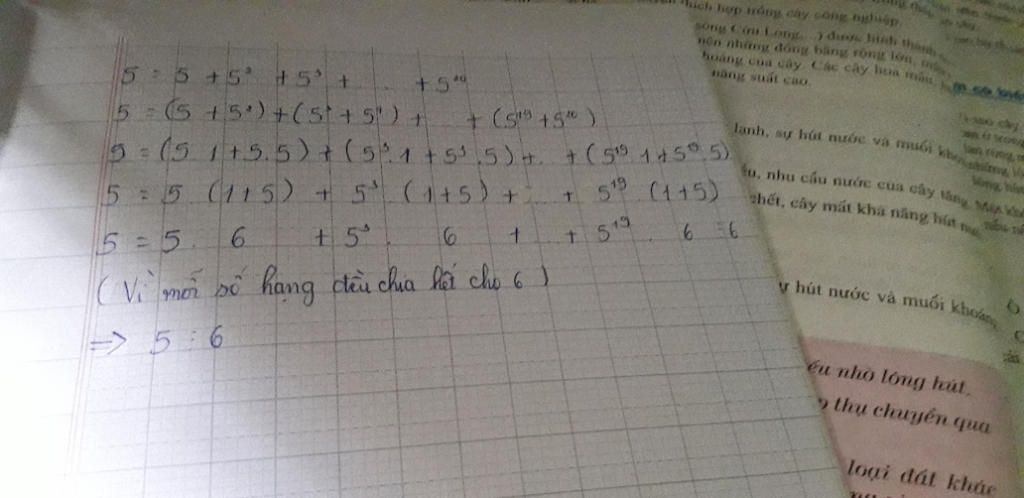 5 = 5 + 5² + 5³ + ... + 5²⁰
5 = (5 + 5²) + (5³ + 5⁴) + ... + (5¹⁹ + 5²⁰)
5 = (5.1 + 5.5) + (5³.1 + 5³.5) + ... + (5¹⁹.1 + 5¹⁹.5)
5 = 5 (1+5) + 5³ (1+5) + ... + 5¹⁹ (1+5)
5 = 5 . 6 + 5³ . 6 + ... + 5¹⁹ . 6 ⋮ 6
(Vì mỗi số hạng đều chia hết cho 6)
=> 5 ⋮ 6
thích hợp trồng cây công nghiệp.
sông Cửu Long,...) được hình thành
nên những đồng bằng rộng lớn,
hoàng của cây. Các cây hoa màu,
năng suất cao.
lạnh, sự hút nước và muối
nhu cầu nước của cây tăng.
chết, cây mất khả năng hút
hút nước và muối khoáng
nhờ lông hút.
thụ chuyển qua
loại đất khác